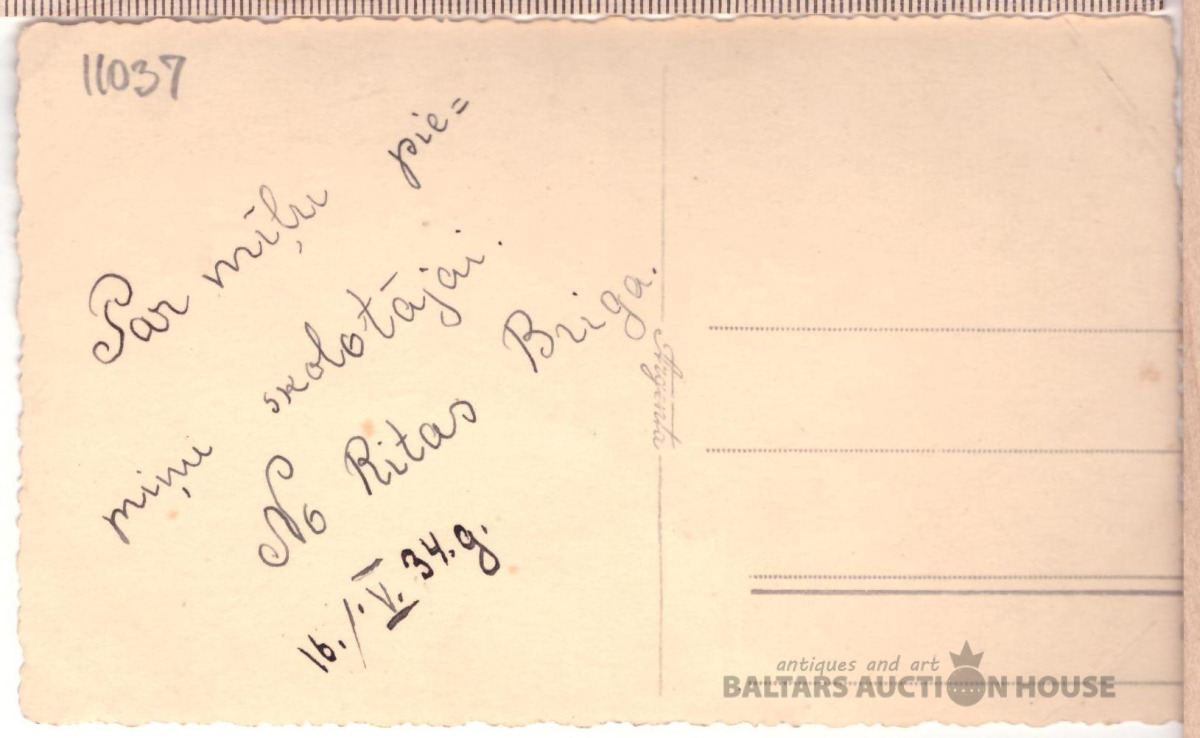 11037
Par mīļu pie=
miņu skolotājai.
No Ritas Briga.
16./V. 34. g.
Argenta
antiques and art
BALTARS AUCTION HOUSE